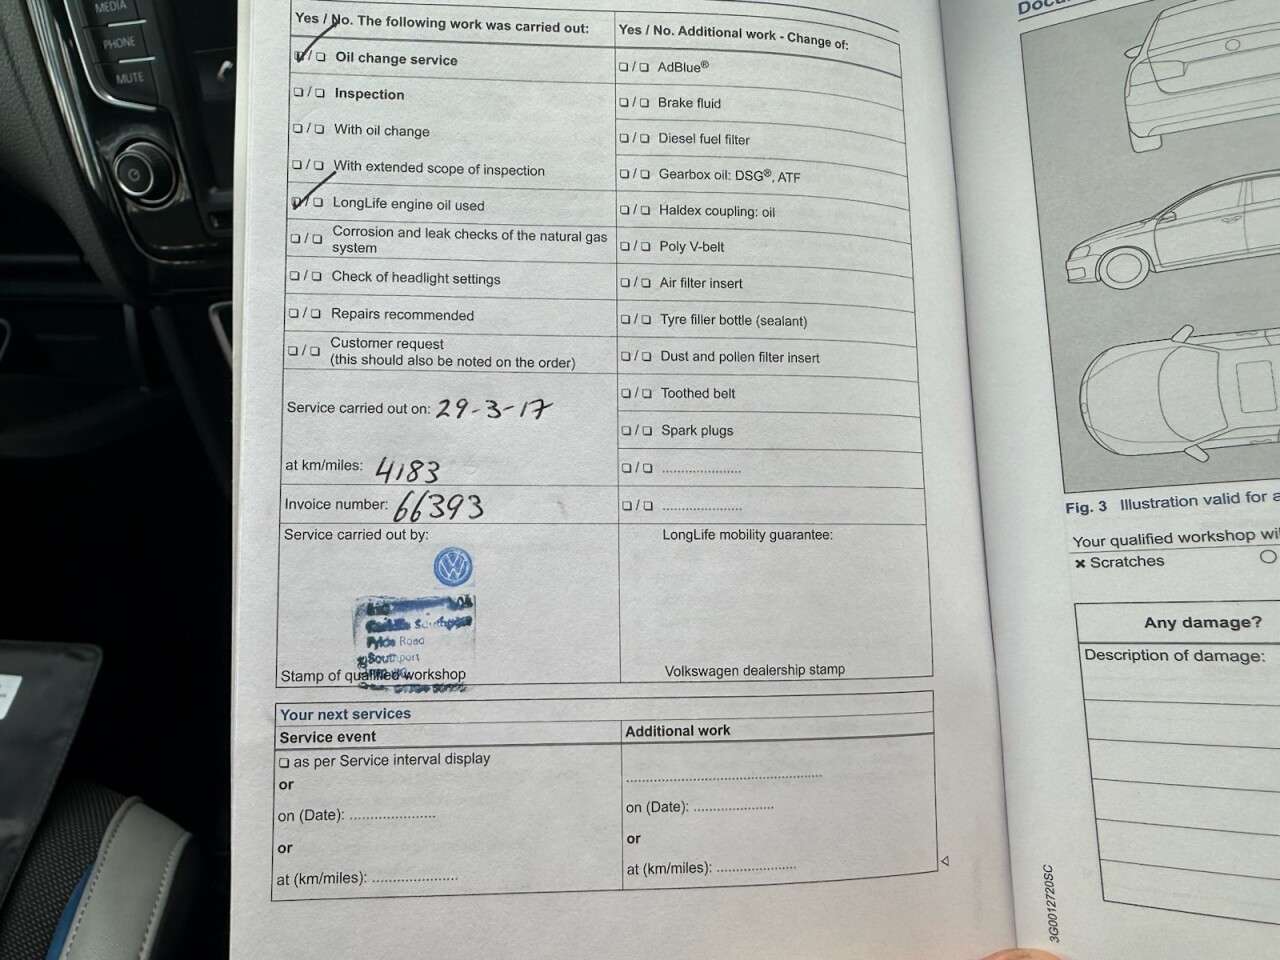 MEDIA
PHONE
MUTE
Yes / No. The following work was carried out:
❏ / ❏ Oil change service
❏ / ❏ Inspection
❏ / ❏ With oil change
❏ / ❏ With extended scope of inspection
❏ / ❏ LongLife engine oil used
❏ / ❏ Corrosion and leak checks of the natural gas
system
❏ / ❏ Check of headlight settings
❏ / ❏ Repairs recommended
❏ / ❏ Customer request
(this should also be noted on the order)
Service carried out on: 29-3-17
at km/miles: 4183
Invoice number: 66393
Service carried out by:
VW
Road
Southport
Stamp of qualified workshop
Yes / No. Additional work - Change of:
❏ / ❏ AdBlue®
❏ / ❏ Brake fluid
❏ / ❏ Diesel fuel filter
❏ / ❏ Gearbox oil: DSG®, ATF
❏ / ❏ Haldex coupling: oil
❏ / ❏ Poly V-belt
❏ / ❏ Air filter insert
❏ / ❏ Tyre filler bottle (sealant)
❏ / ❏ Dust and pollen filter insert
❏ / ❏ Toothed belt
❏ / ❏ Spark plugs
❏ / ❏ ......................
❏ / ❏ ......................
LongLife mobility guarantee:
Volkswagen dealership stamp
Your next services
Service event
❏ as per Service interval display
or
on (Date): ......................
or
at (km/miles): ......................
Additional work
..................................................
on (Date): ....................
or
at (km/miles): ....................
Fig. 3 Illustration valid for
Your qualified workshop
× Scratches
Any damage?
Description of damage:
3G0012720SC